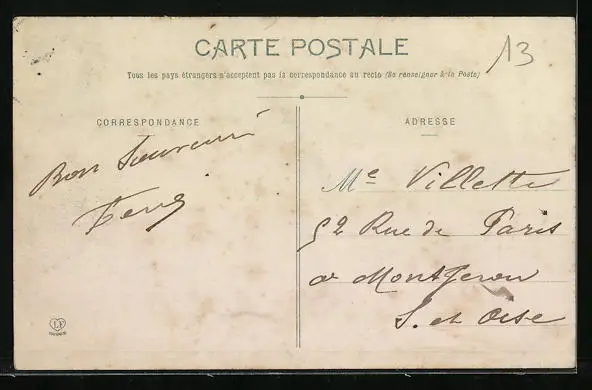 CARTE POSTALE
13
Tous les pays étrangers n'acceptent pas la correspondance au recto (Se renseigner à la Poste)
CORRESPONDANCE
Bon Souvenir
ADRESSE
Me Villette
52 Rue de Paris
a Montgeron
S. et Oise
LF